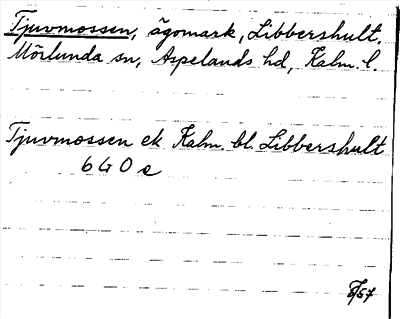 Tjuvmossen, ägomark, Libbershult,
Mörlunda sn, Aspelands hd, Kalm. l.
Tjuvmossen ek Kalm. bl. Libbershult
6 G 0 e
/57